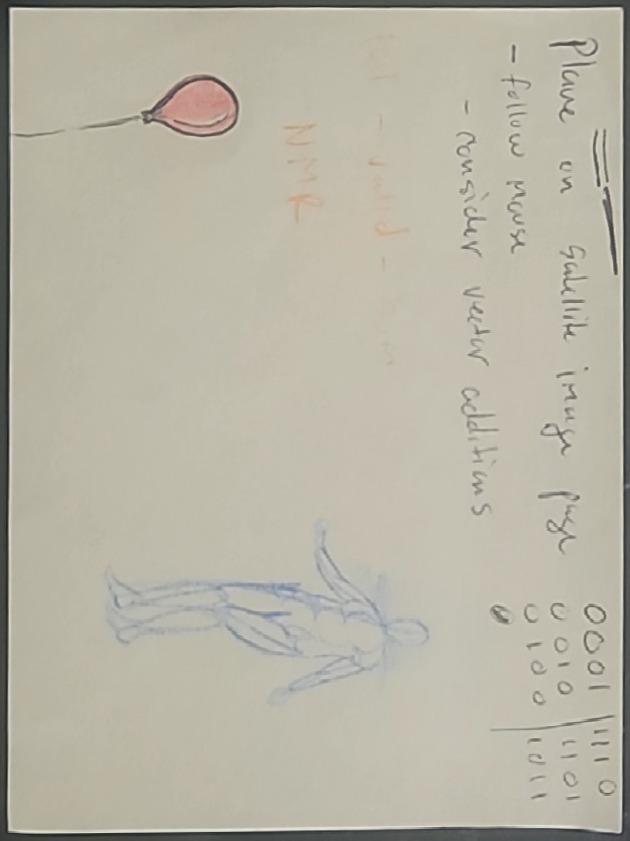 Plane on satellite image page
- follow mouse
- consider vector additions
0001 | 1110
0010 | 1101
0100 | 1011
- valid -
NMR